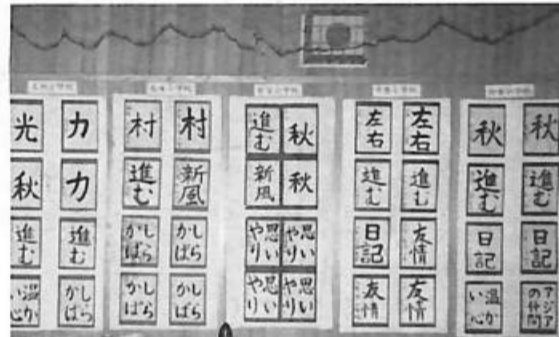 光
力
秋
力
進む
進む
温か
い心
しら
かば
村
村
進む
新風
しら
かば
しら
かば
しら
かば
しら
かば
進む
秋
新風
秋
思い
やり
思い
やり
思い
やり
思い
やり
左右
左右
進む
進む
日記
友情
友情
友情
秋
秋
進む
進む
日記
日記
温か
い心
アジア
の仲間